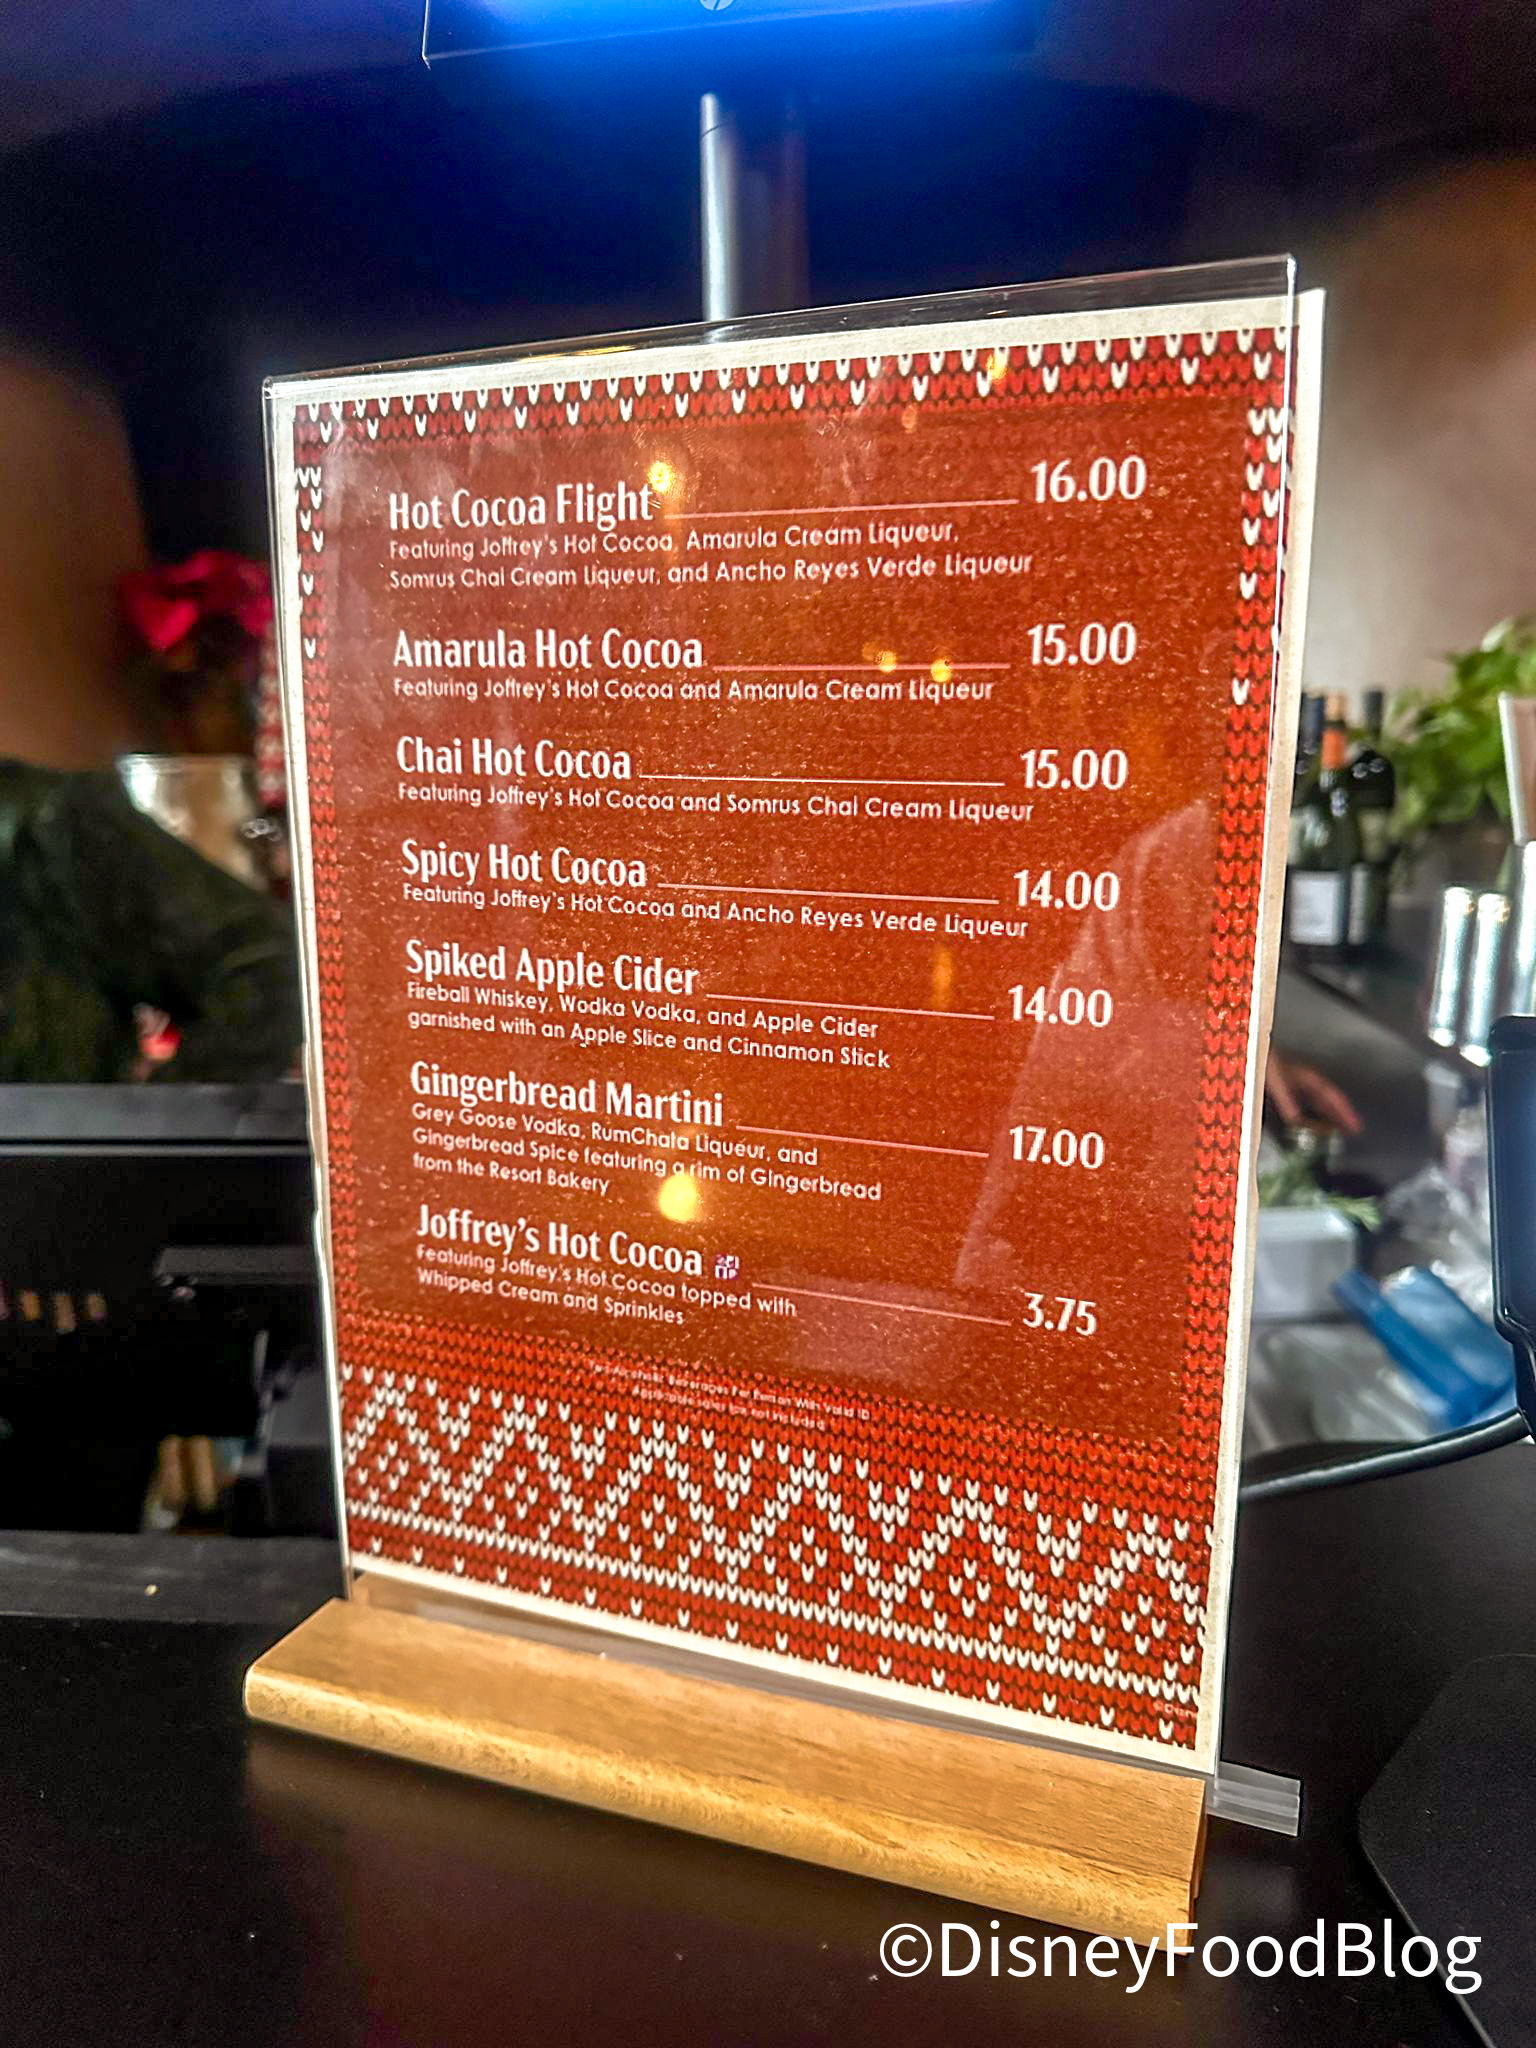 Hot Cocoa Flight 16.00
Featuring Joffrey's Hot Cocoa, Amarula Cream Liqueur,
Somrus Chai Cream Liqueur, and Ancho Reyes Verde Liqueur
Amarula Hot Cocoa 15.00
Featuring Joffrey's Hot Cocoa and Amarula Cream Liqueur
Chai Hot Cocoa 15.00
Featuring Joffrey's Hot Cocoa and Somrus Chai Cream Liqueur
Spicy Hot Cocoa 14.00
Featuring Joffrey's Hot Cocoa and Ancho Reyes Verde Liqueur
Spiked Apple Cider 14.00
Fireball Whiskey, Wodka Vodka, and Apple Cider
garnished with an Apple Slice and Cinnamon Stick
Gingerbread Martini 17.00
Grey Goose Vodka, RumChata Liqueur, and
Gingerbread Spice featuring a rim of Gingerbread
from the Resort Bakery
Joffrey's Hot Cocoa 3.75
Featuring Joffrey's Hot Cocoa topped with
Whipped Cream and Sprinkles
Alcoholic Beverages Per Person With Valid ID
Applicable sales tax not included
©DisneyFoodBlog